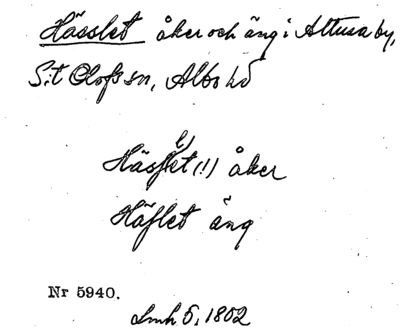 Hässlet åker och äng i Attusa by,
S:t Olofs sn, Albo hd
l)
Hässet (!) åker
Häslet äng
Nr 5940.
Lmh 5, 1802